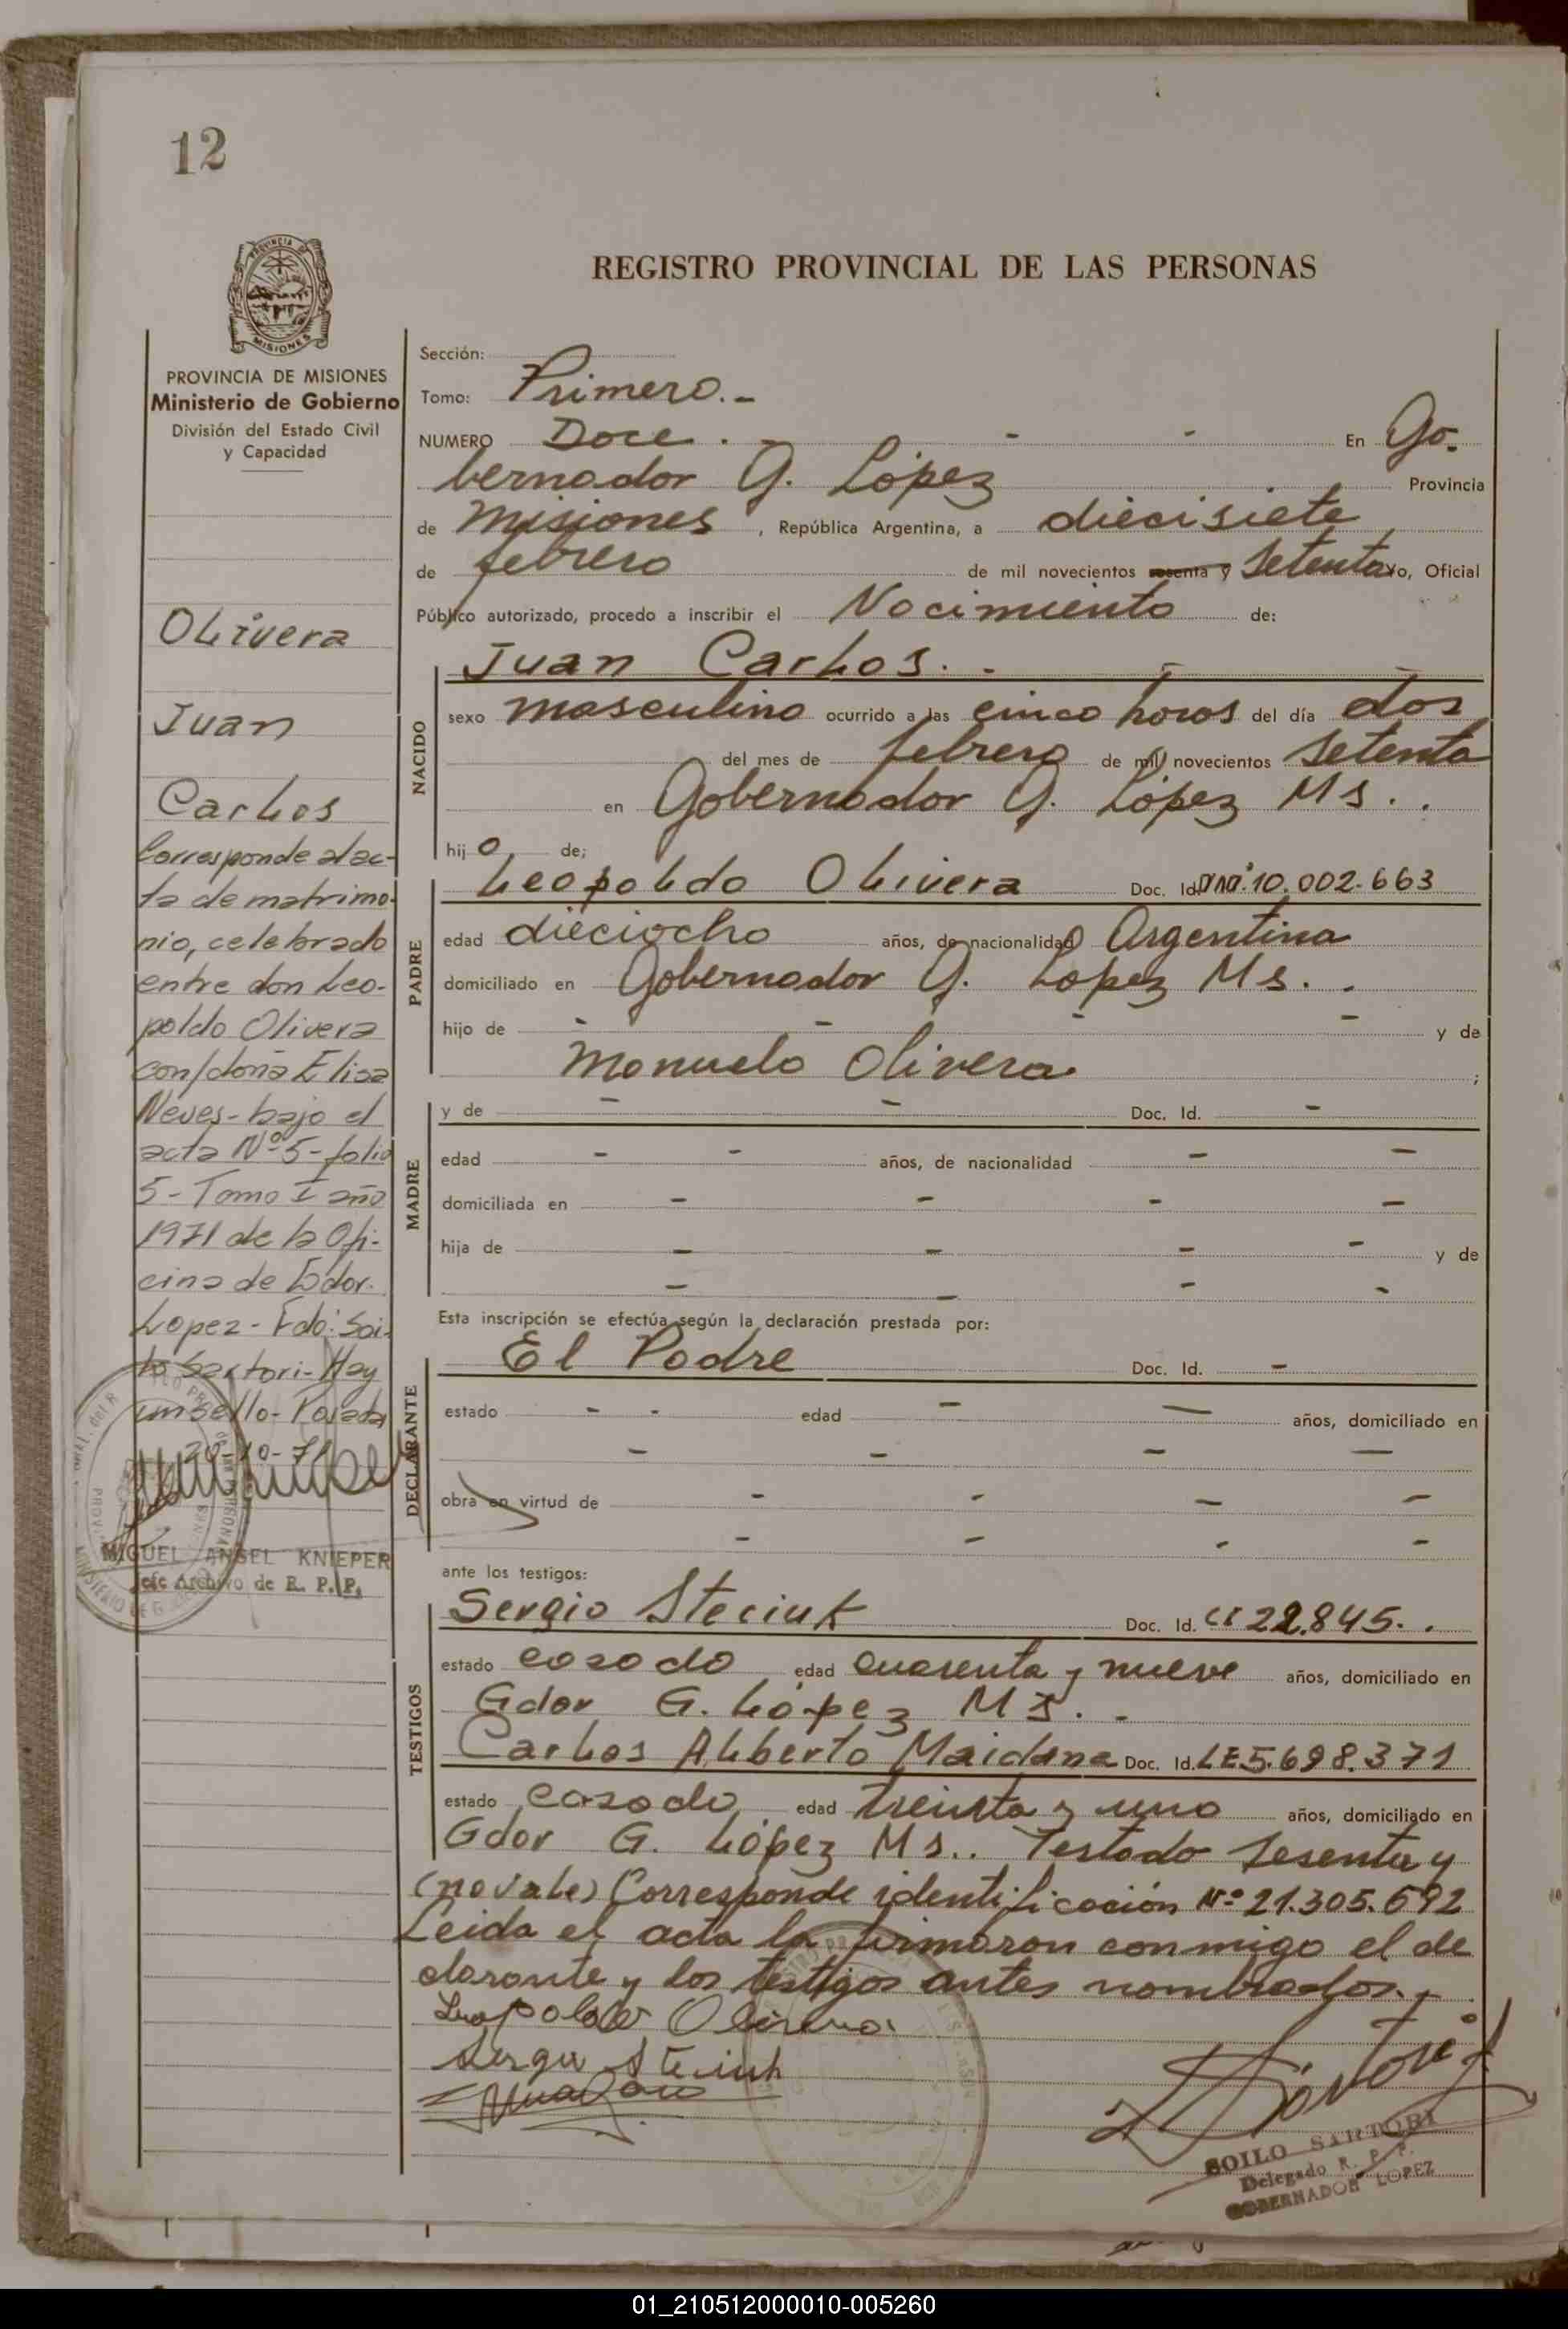 12
REGISTRO PROVINCIAL DE LAS PERSONAS
PROVINCIA DE MISIONES
Ministerio de Gobierno
División del Estado Civil
y Capacidad
Olivera
Juan
Carlos
Corresponde al ac-
ta de matrimo-
nio, celebrado
entre don Leo-
poldo Olivera
con/doña Elisa
Neves - bajo el
acta Nº 5 - folio
5 - Tomo I año
1971 de la Ofi-
cina de Gdor.
Lopez - Fdo: Soi-
lo Sartori - Hay
un sello - Posadas
20-10-71
MIGUEL ANGEL KNIEPER
Jefe Archivo de R. P. P.
Sección:
Tomo: Primero.-
NUMERO Doce . - - - En Go-
bernador G. López Provincia
de Misiones , República Argentina, a diecisiete
de febrero de mil novecientos sesenta y Setenta yo, Oficial
Público autorizado, procedo a inscribir el Nacimiento de:
NACIDO
Juan Carlos. . - -
sexo masculino ocurrido a las cinco horas del día dos
del mes de febrero de mil novecientos setenta
en Gobernador G. López Ms. .
hij o de;
PADRE
Leopoldo Olivera Doc. Id. DNI: 10.002.663
edad dieciocho años, de nacionalidad Argentina
domiciliado en Gobernador G. Lopez Ms. .
hijo de - - - y de
Manuela Olivera ;
MADRE
y de - - Doc. Id. -
edad - - años, de nacionalidad - -
domiciliada en - - - -
hija de - - - - y de
- - - -
Esta inscripción se efectúa según la declaración prestada por:
DECLARANTE
El Padre Doc. Id. -
estado - - edad - - años, domiciliado en
- - - -
obra en virtud de - - - -
- - - -
ante los testigos:
TESTIGOS
Sergio Steciuk Doc. Id. CI 22.845. .
estado casado edad cuarenta y nueve años, domiciliado en
Gdor G. López Ms. -
Carlos Alberto Maidana Doc. Id. LE 5.698.371
estado casado edad treinta y uno años, domiciliado en
Gdor G. López Ms.. Testado sesenta y
(no vale) Corresponde identificación Nº 21.305.692
Leida el acta la firmaron conmigo el de
clarante y los testigos antes nombrados.-
Leopoldo Olivera
Sergio Steciuk
SOILO SARTORI
Delegado R. P. P.
GOBERNADOR LOPEZ
01_210512000010-005260